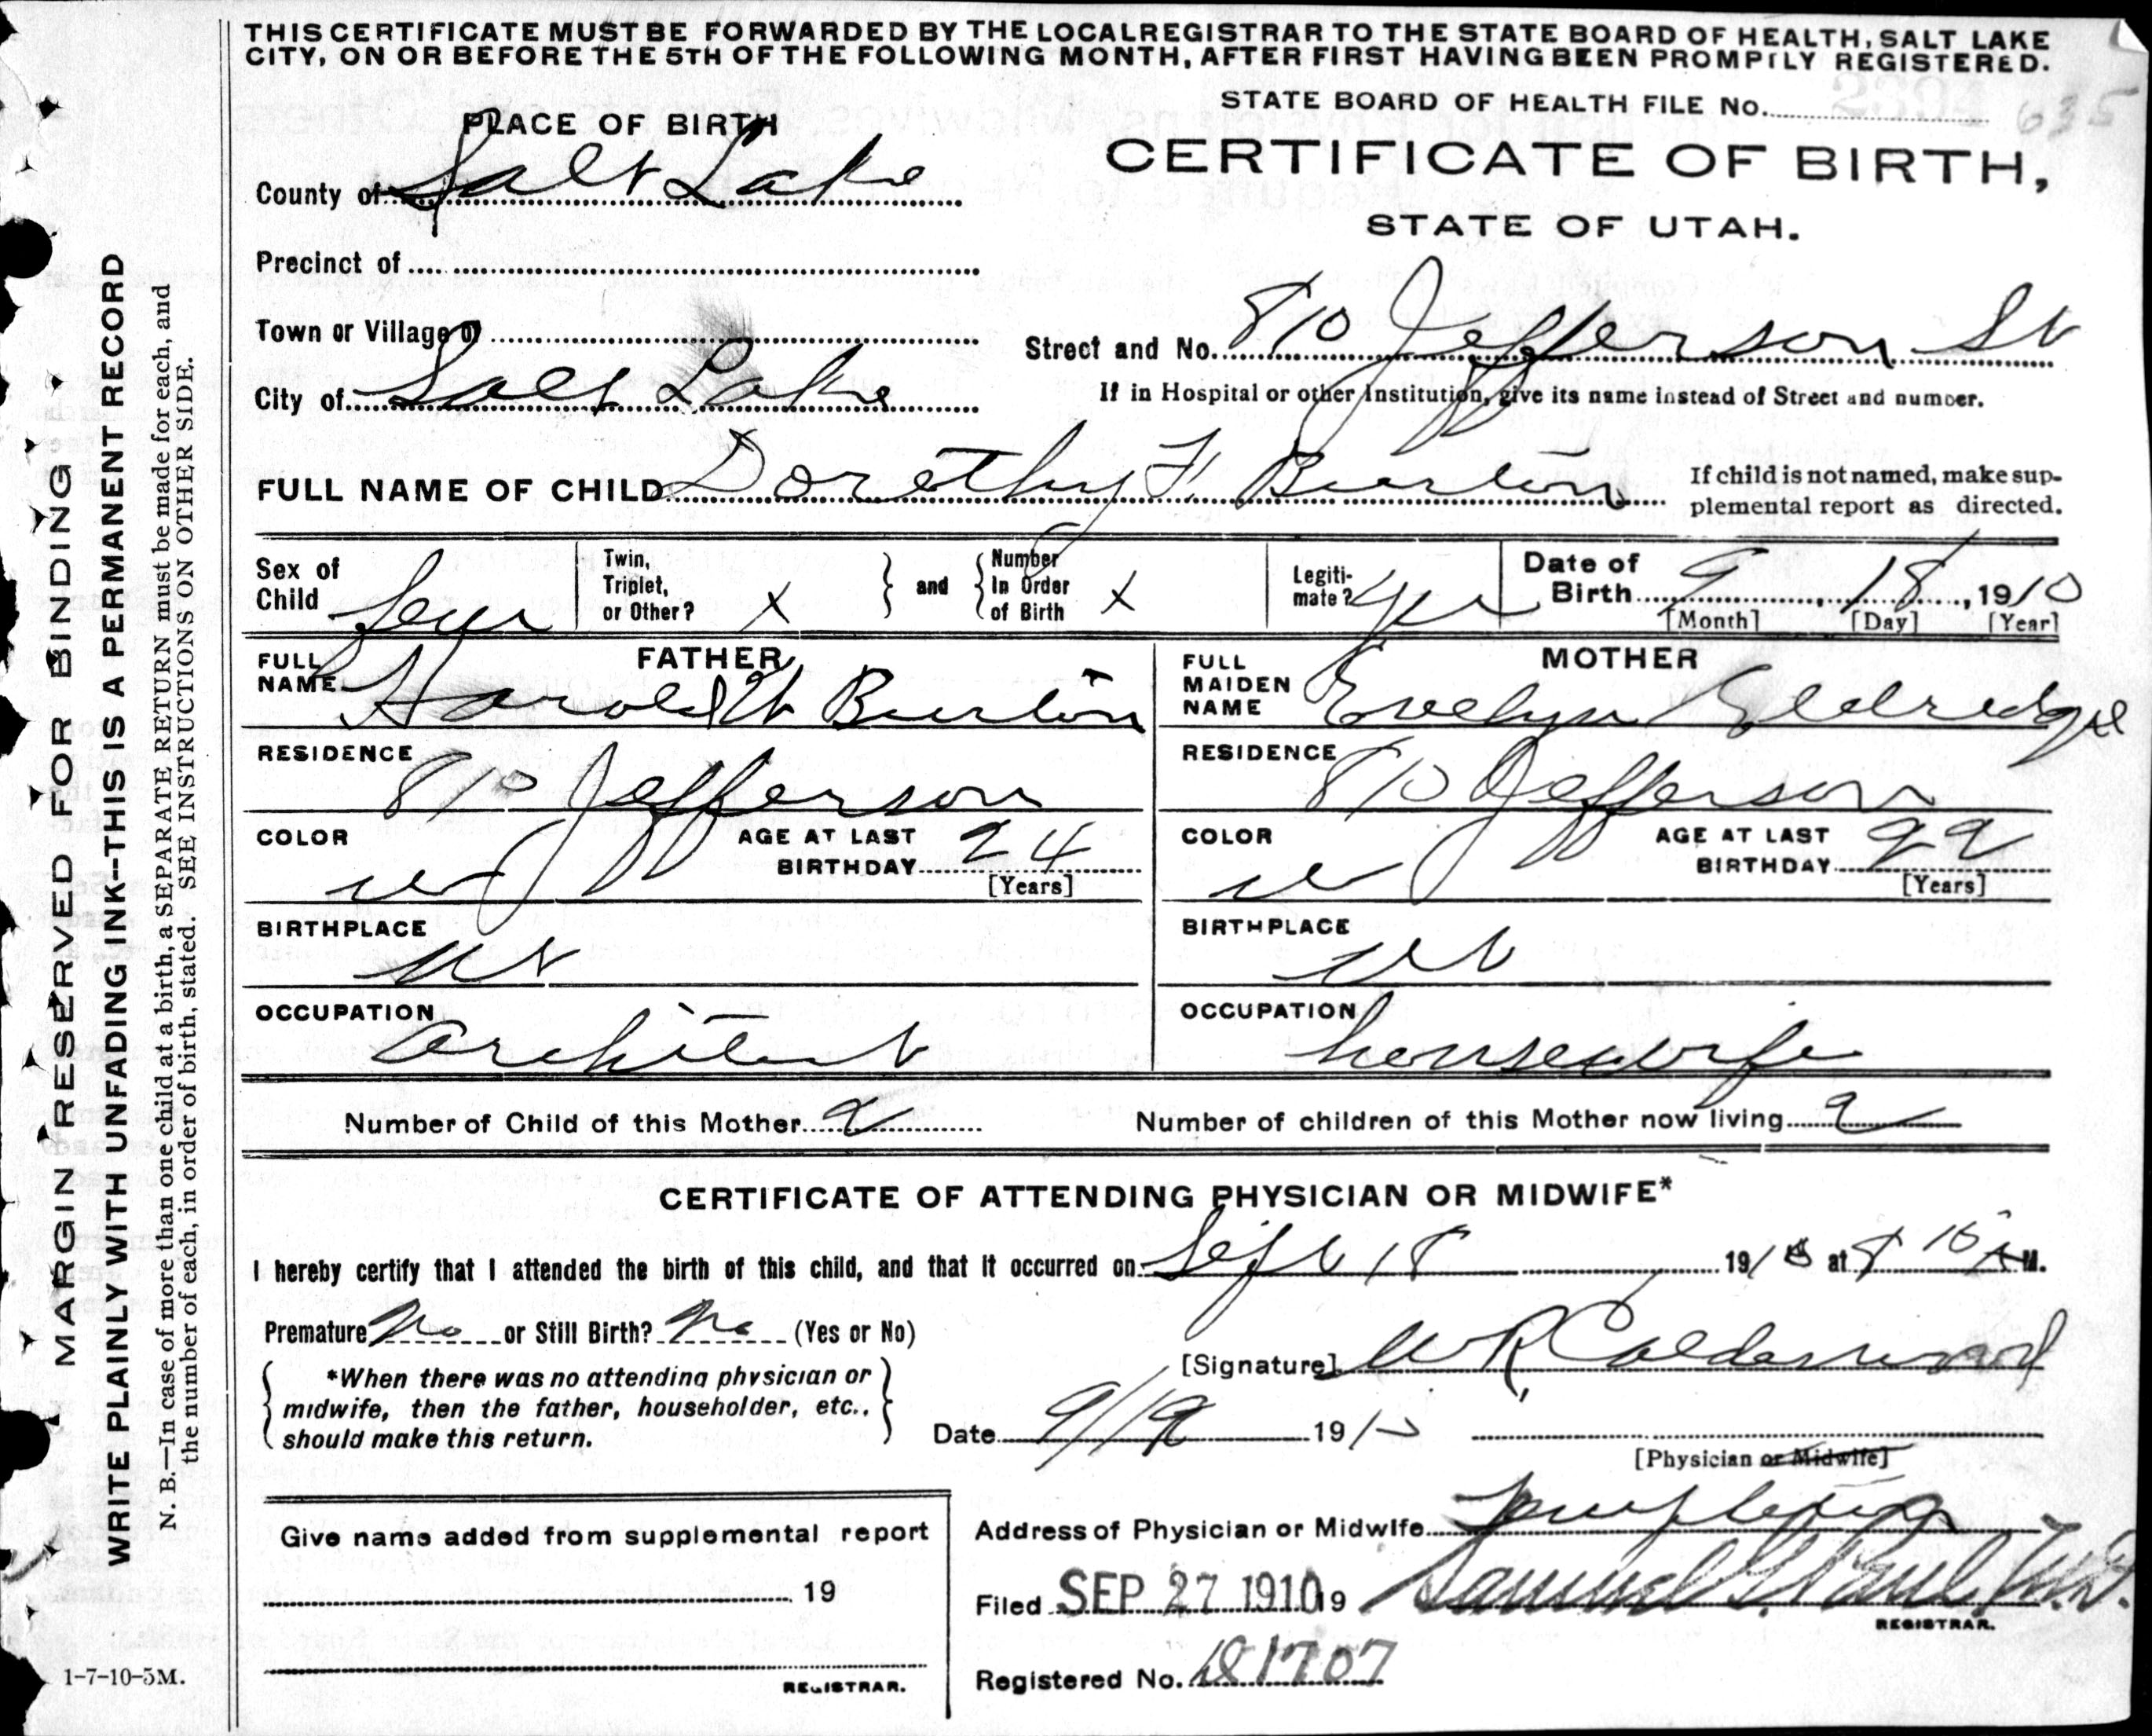 THIS CERTIFICATE MUST BE FORWARDED BY THE LOCAL REGISTRAR TO THE STATE BOARD OF HEALTH, SALT LAKE
CITY, ON OR BEFORE THE 5TH OF THE FOLLOWING MONTH, AFTER FIRST HAVING BEEN PROMPTLY REGISTERED.
STATE BOARD OF HEALTH FILE No. 635
PLACE OF BIRTH
CERTIFICATE OF BIRTH,
STATE OF UTAH.
County of Salt Lake
Precinct of
Town or Village of
Street and No. 810 Jefferson St
City of Salt Lake
If in Hospital or other Institution, give its name instead of Street and number.
FULL NAME OF CHILD Dorethy F. Burton
If child is not named, make sup-
plemental report as directed.
Sex of Child Fem
Twin, Triplet, or Other? X and Number In Order of Birth X
Legiti-mate? Yes
Date of Birth 9, 18, 1910
[Month] [Day] [Year]
FATHER
FULL NAME Harold W Burton
RESIDENCE 810 Jefferson
COLOR w AGE AT LAST BIRTHDAY 24
[Years]
BIRTHPLACE Ut
OCCUPATION architect
MOTHER
FULL MAIDEN NAME Evelyn Eldredge
RESIDENCE 810 Jefferson
COLOR w AGE AT LAST BIRTHDAY 22
[Years]
BIRTHPLACE Ut
OCCUPATION housewife
Number of Child of this Mother 2
Number of children of this Mother now living 2
CERTIFICATE OF ATTENDING PHYSICIAN OR MIDWIFE*
I hereby certify that I attended the birth of this child, and that it occurred on Sept 18 1910 at 8 10 A M.
Premature No or Still Birth? No (Yes or No)
[Signature] W R Calderwood
*When there was no attending physician or
midwife, then the father, householder, etc.,
should make this return.
Date 9/19 1910
[Physician or Midwife]
Address of Physician or Midwife Templeton
Give name added from supplemental report
19
REGISTRAR.
Filed SEP 27 1910 19 Samuel G. Paul, M.D.
REGISTRAR.
Registered No. 1707
1-7-10-5M.
MARGIN RESERVED FOR BINDING
WRITE PLAINLY WITH UNFADING INK--THIS IS A PERMANENT RECORD
N. B.—In case of more than one child at a birth, a SEPARATE RETURN must be made for each, and
the number of each, in order of birth, stated. SEE INSTRUCTIONS ON OTHER SIDE.